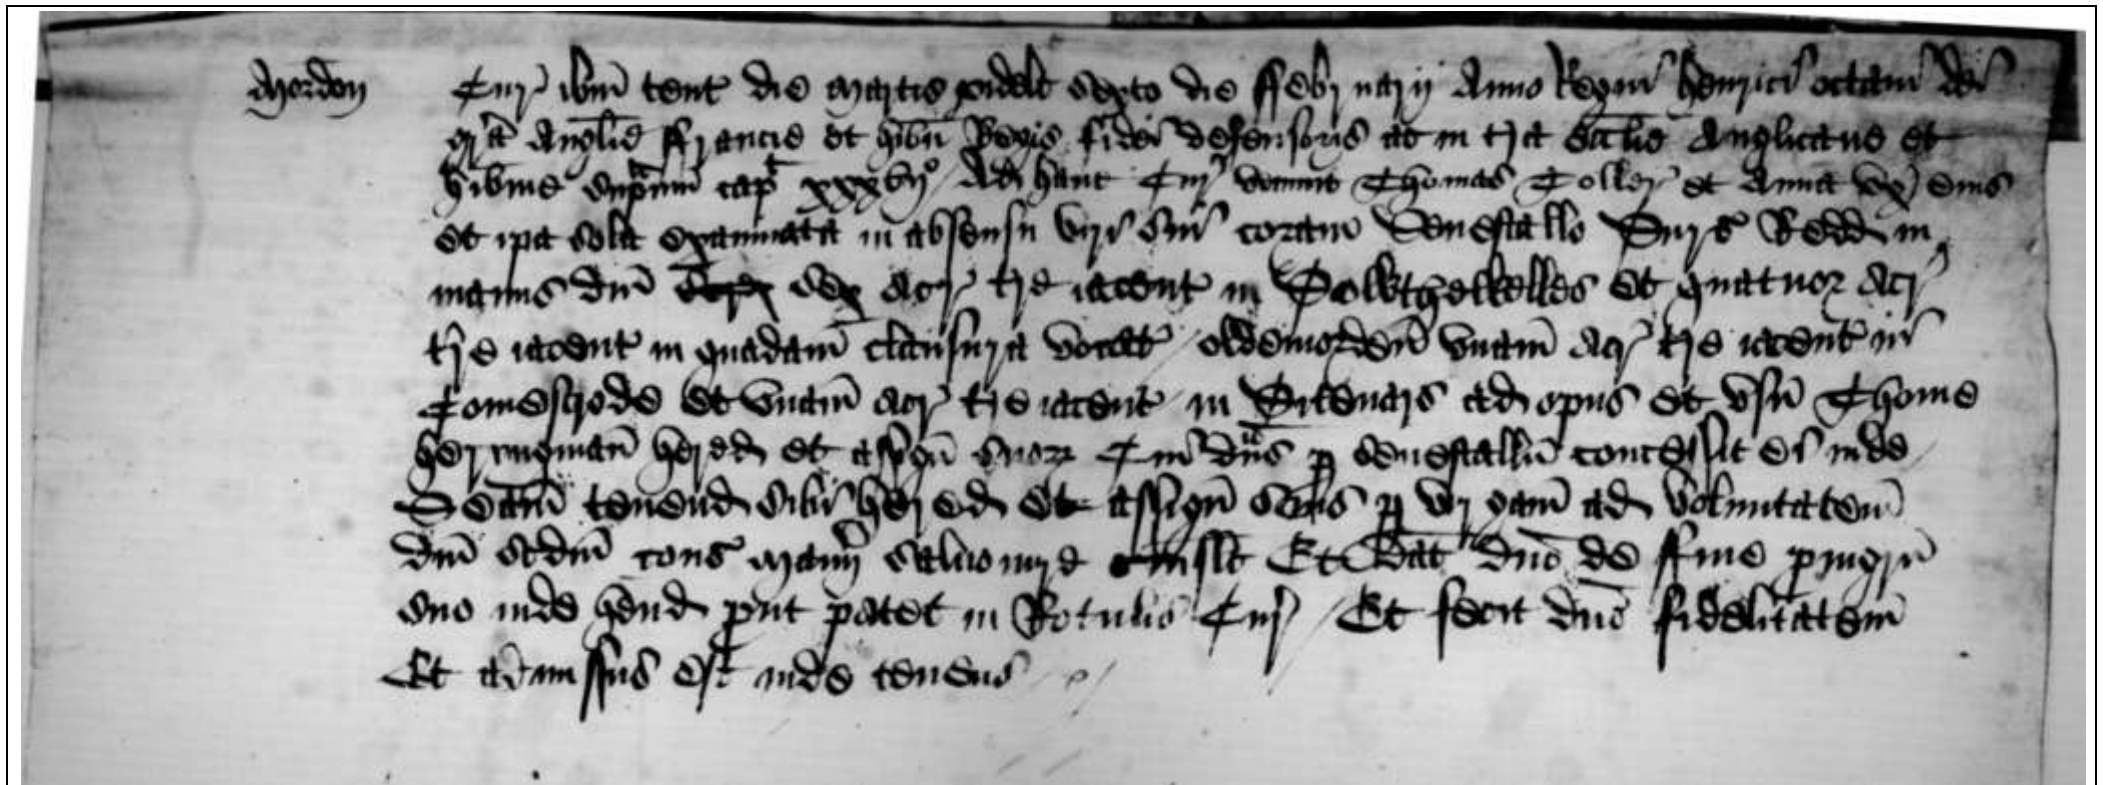 Mordon Cur ibm tent die martis videlt sexto die ffebruarij Anno Regni henrici octavi dei
gra Anglie ffrancie et hibn Regis fidei defensoris ac in tra ecclie Anglicane et
hibnie supremi cap xxxvijo Ad hanc Cur venit Thomas Toller et Anna vx eius
et ipa sola examinata in absensu viri sui coram Senescallo Surs Redd in
manus dni sex acr tre iacent in et quatuor acr
tre iacent in quadam clausura vocat oldemorden vnam acr tre iacent in
Comestrode et vnam acr tre iacent in ad opus et vsu Thome
herryngman hered et assign suor Cui dns p senescallu concessit ei inde
Seam tenend sibi hered et assign suis p virgam ad voluntatem
dni scdm cons manij salvo iure Et Dat dno de ffine p ingru
suo inde hend put patet in Rotulis Cur / Et fecit dno fidelitatem
Et admissus est inde tenens